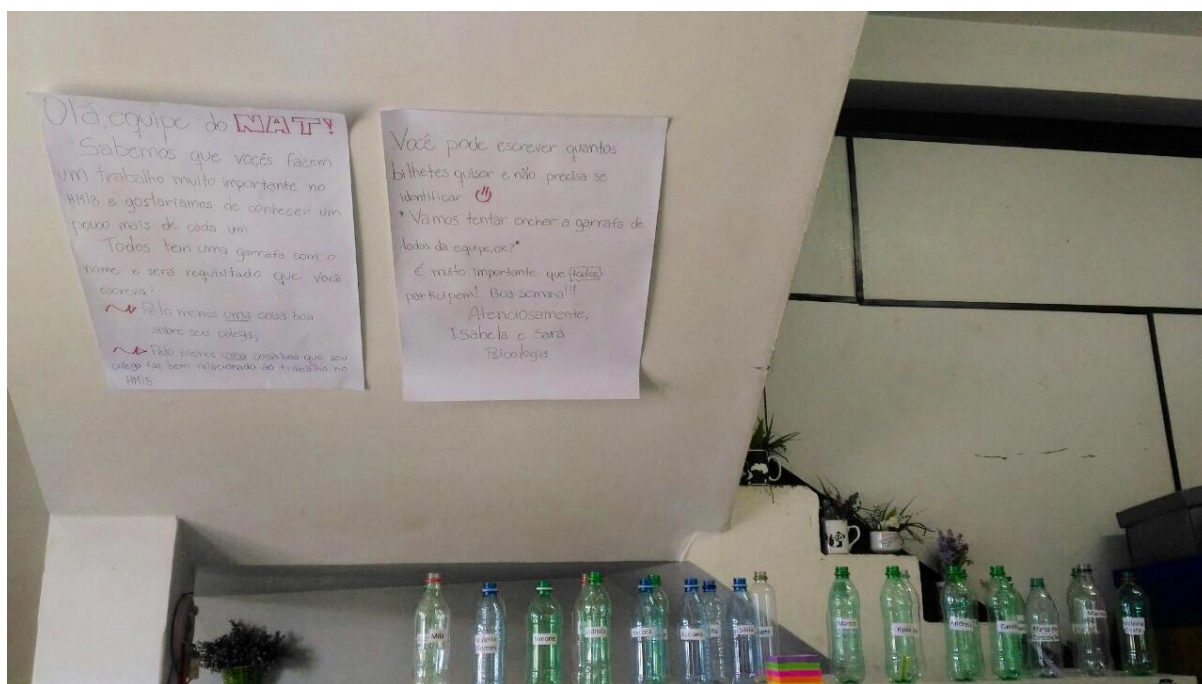 Olá, equipe do NAT!
Sabemos que vocês fazem
um trabalho muito importante no
HMIB e gostaríamos de conhecer um
pouco mais de cada um.
Todos tem uma garrafa com o
nome e será requisitado que você
escreva:
Pelo menos uma coisa boa
sobre seu colega;
Pelo menos uma coisa boa que seu
colega faz bem relacionado ao trabalho no
HMIB
Você pode escrever quantos
bilhetes quiser e não precisa se
identificar
*Vamos tentar encher a garrafa de
todos da equipe, ok?*
É muito importante que todos
participem! Boa semana!!!
Atenciosamente,
Isabela e Sara
Psicologia
Mila
Valéria
Simone
Luciana
Andrea
Maria da